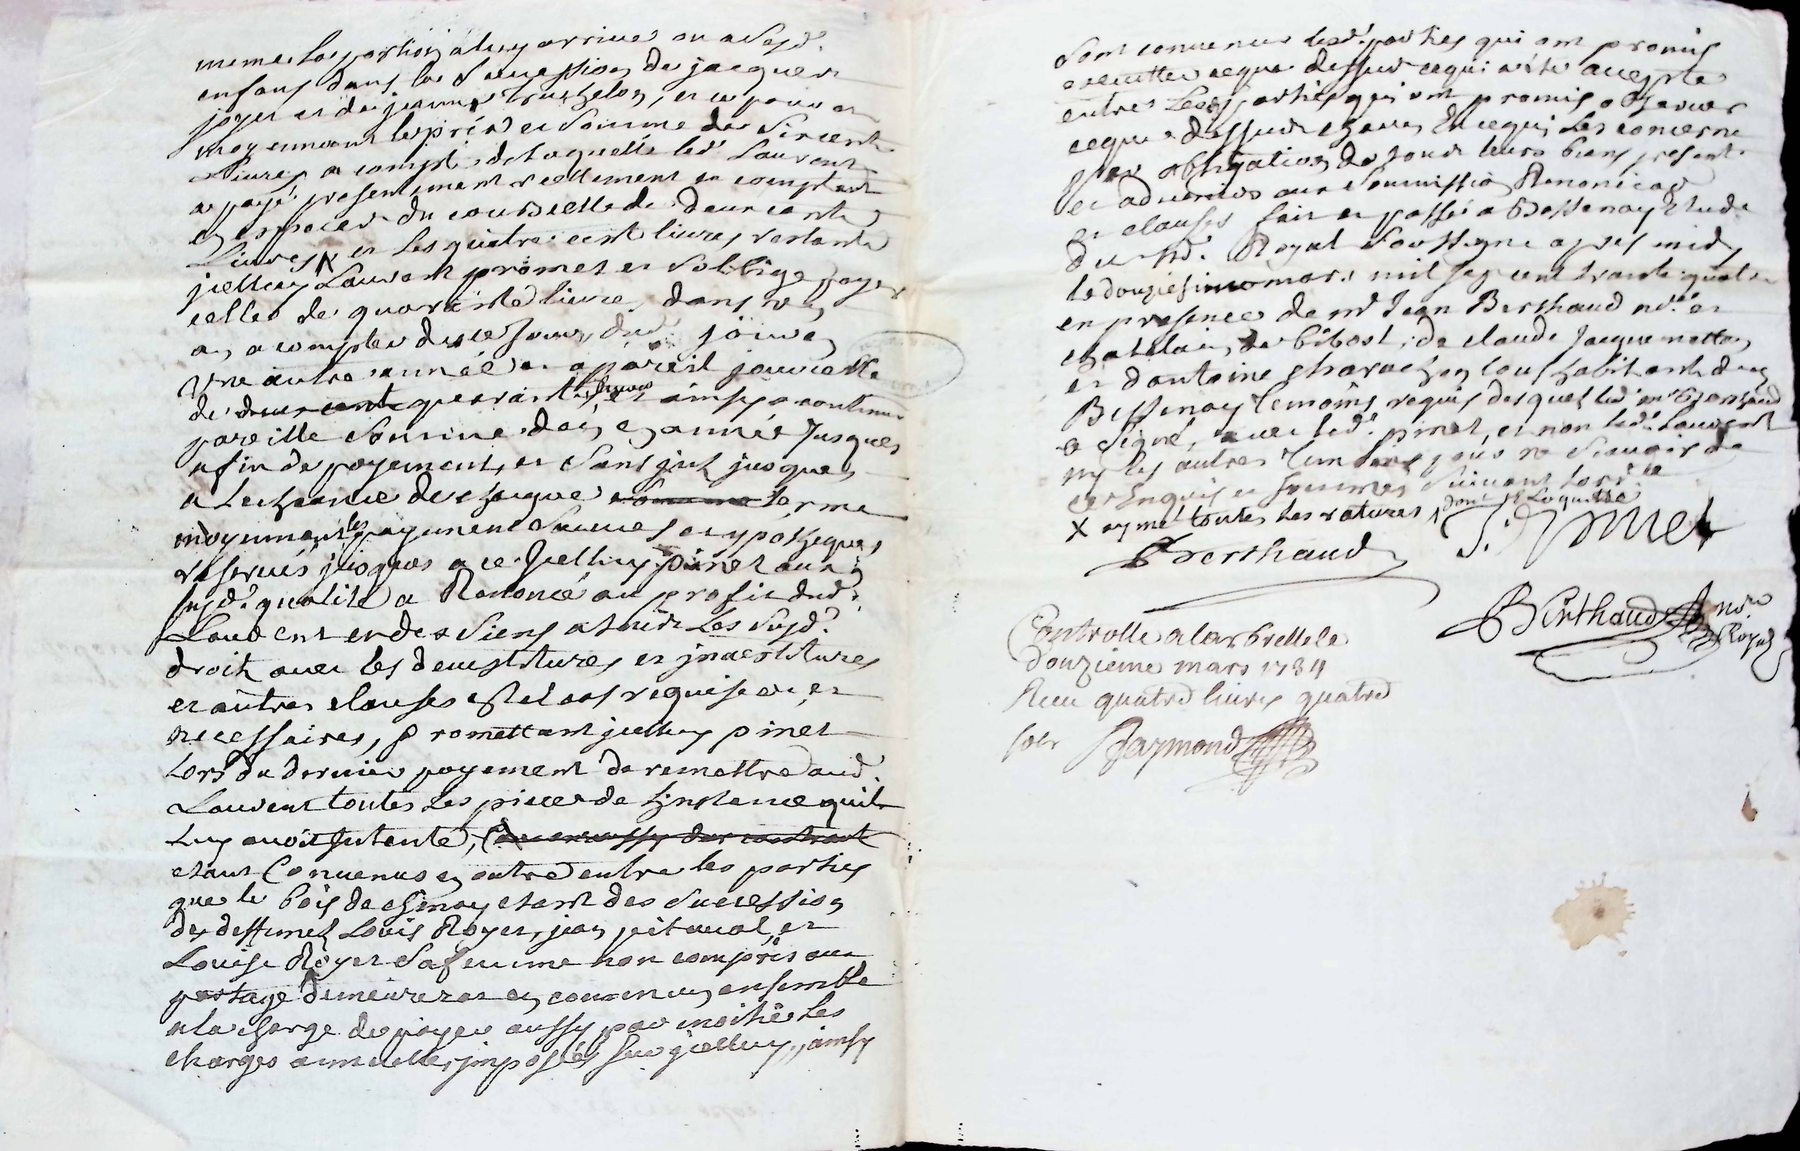 meme la portion a luy arrivee ou a Sesd.
enfans dans la Succession de jacques
joyer et de jeanne truchelon, et ce pour et
moyennant le prix et Somme de Six cent
Livres a compte de laquelle led. Laurent
a payé presentement reellement et comptant
en espaces du cours celle de deux cents
Livres X et les quatre cent livres restante
jcelluy Laurent promet et Soblige payer
celles de quarante livres dans un
an a compter de ce jour dud. jour en
Une autre année a pareil jour celle
de deux cent quarante livres ainsy a continuer
pareille Somme dan en année Jusques
a fin de payement, et Sans jnt jusques
a Lecheance de chaque Somme terme
moyennant les payement Saumes et ypotheques
reservés jusques a ce Jcelluy pinet aux
susd. qualité a Renoncé au profit dud.
Laurent et des Siens a tous Les Susd.
droit avec les devestitures et jnvestitures
et autres clauses Estat a ce requises et
necessaires, promettant jcelluy pinet
Lors du dernier payement de remettre aud.
Laurent toutes Les pieces de Linstance quil
Luy avoit Jntenté,
etant Convenus en outre entre les parties
que le bois de chenay etant des Succession
des deffunct Louis Royer, jean pitaval et
Louise Royer Sa femme non compris aux
partage demeurera en commun ensemble
a la charge de payer aussy par moitié Les
charges annuelles jmposés Sur jcelluy, ainsy
Sont convenus lesd. parties qui ont promis
executter ce que dessus ce qui a été accepté
entres Lesd. parties qui ont promis observer
ce que dessus chacun En ce qui Les concerne
par obligation de tous leurs biens present
et advenir aux Soumission Renonication
et clauses fait et passé a Bessenay Etude
du nre. Royal Soussigné apres midy
le douziesime mars mil sept cent trante quatre
en presence de mr Jean Berthaud nre. et
chatelain de bibost, de claude Jacquemetton
et dantoine charvetzon tous habitants dud.
Bessenay temoins requis desquels led. mr Berthaud
a Signé, avec led. pinet, et non led. Laurent
ny les autres temoins pour ne Scavoir de
ce Enquis et Sommes Suivant Lord.ce
X aymé toutes les ratures dont Laquelle
Berthaud J. Pinet
Berthaud nore Royal
Controllé a larbrelle le
douzieme mars 1734
Receu quatre livres quatre
sols Raymond